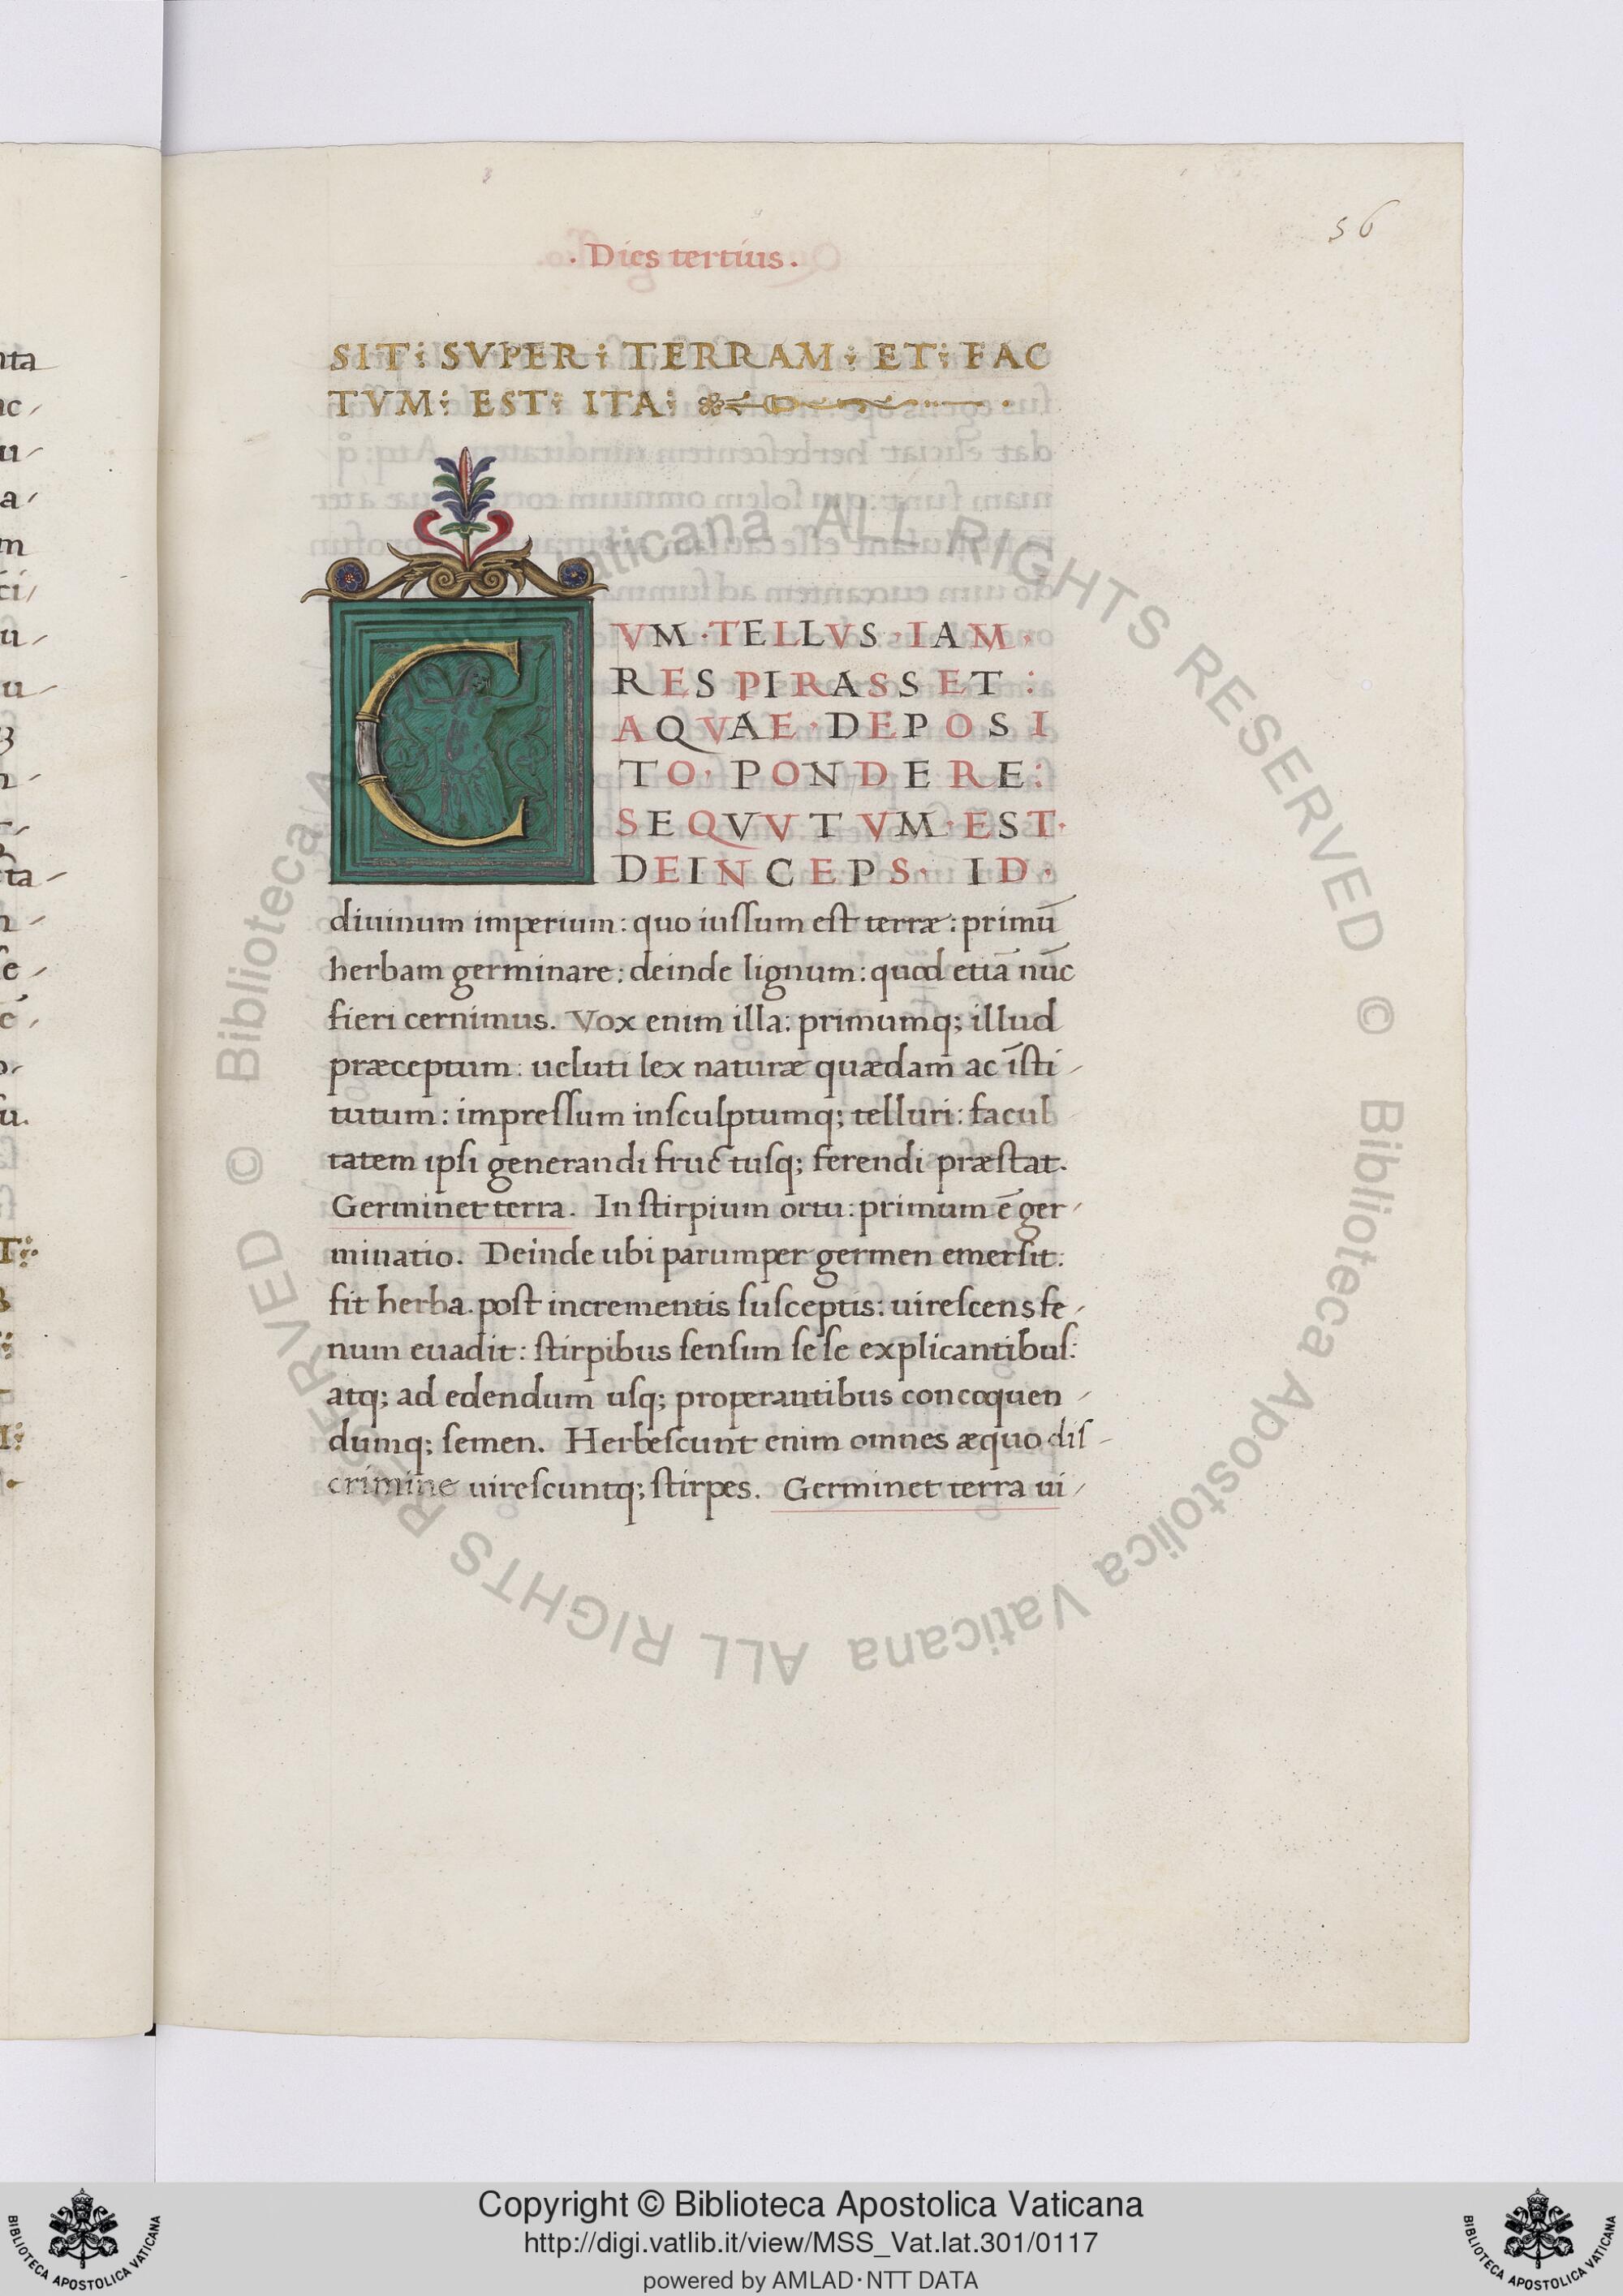 56
· Dies tertius ·
SIT: SVPER: TERRAM: ET: FAC
TVM: EST: ITA:
CVM · TELLVS · IAM ·
RESPIRASSET :
AQVAE · DEPOSI
TO · PONDERE :
SEQVVTVM · EST ·
DEINCEPS · ID ·
diuinum imperium: quo iussum est terræ: primū
herbam germinare: deinde lignum: quod etiā nūc
fieri cernimus. Vox enim illa: primumq; illud
præceptum: ueluti lex naturæ quædam ac īsti-
tutum: impressum insculptumq; telluri: facul
tatem ipsi generandi fructusq; ferendi præstat.
Germinet terra. In stirpium ortu: primum ē ger-
minatio. Deinde ubi parumper germen emersit:
fit herba. post incrementis susceptis: uirescens fe-
num euadit: stirpibus sensim sese explicantibus:
atq; ad edendum usq; properantibus concoquen-
dumq; semen. Herbescunt enim omnes æquo dis-
crimine uirescuntq; stirpes. Germinet terra ui-
nta
Copyright © Biblioteca Apostolica Vaticana
http://digi.vatlib.it/view/MSS_Vat.lat.301/0117
powered by AMLAD·NTT DATA
BIBLIOTECA APOSTOLICA VATICANA
BIBLIOTECA APOSTOLICA VATICANA
© Biblioteca Apostolica Vaticana ALL RIGHTS RESERVED
© Biblioteca Apostolica Vaticana ALL RIGHTS RESERVED